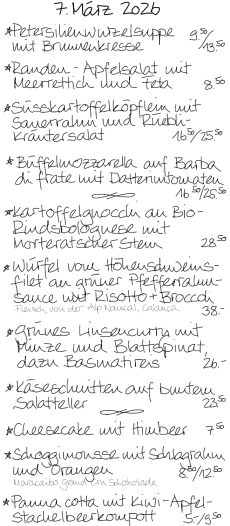 7. März 2026
*Petersilienwurzelsuppe 9.50/13.50
mit Brunnenkresse
*Randen-Apfelsalat mit
Meerrettich und Feta 8.50
*Süsskartoffelköpflein mit
Sauerrahm und Rüebli-
Kräutersalat 16.50/25.50
*Büffelmozzarella auf Barba
di frate mit Datterinitomaten
16.50/25.50
*Kartoffelgnocchi an Bio-
Rindsbolognese mit
Morteratscher Stein 28.50
*Würfel vom Höhenschweins-
filet an grüner Pfefferrahm-
sauce mit Risotto + Broccoli
Fleisch von der Alp Nancal, Calanca 38.-
*Grünes Linsencurry mit
Minze und Blattspinat,
dazu Basmatireis 26.-
*Käseschnitten auf buntem
Salatteller 23.50
*Cheesecake mit Himbeer 7.50
*Schoggimousse mit Schlagrahm
und Orangen 8.50/12.50
Maracaibo Grand Cru Schokolade
*Panna cotta mit Kiwi-Apfel-
Stachelbeerkompott 5.-/8.50